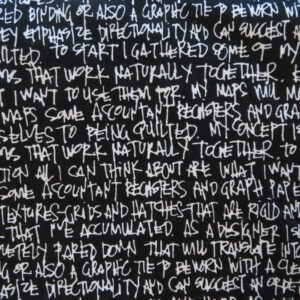 RED BINDING OR ALSO A GRAPHIC TIE TO BE WORN WITH
EY EMPHASIZE DIRECTIONALITY AND CAN SUGGEST AN
UILTED. TO START I GATHERED SOME OF MY
MS THAT WORK NATURALLY TOGETHER.
I WANT TO USE THEM FOR MY MAPS WILL
MAPS SOME ACCOUNTANT REGISTERS AND GRA
SELVES TO BEING QUILTED. MY CONCEPT I
MS THAT WORK NATURALLY TOGETHER. TO
TION ALL I CAN THINK ABOUT ARE WHAT I WANT
S SOME ACCOUNTANT REGISTERS AND GRAPH PAPE
TEXTURES-GRIDS AND HATCHES-THAT ARE RIGID AN
THAT I'VE ACCUMULATED AS A DESIGNER I
LETELY PARED DOWN THAT WILL TRANSLATE INT
NG OR ALSO A GRAPHIC TIE TO BE WORN WITH A
ASIZE DIRECTIONALITY AND CAN SUGGEST AN ORDE